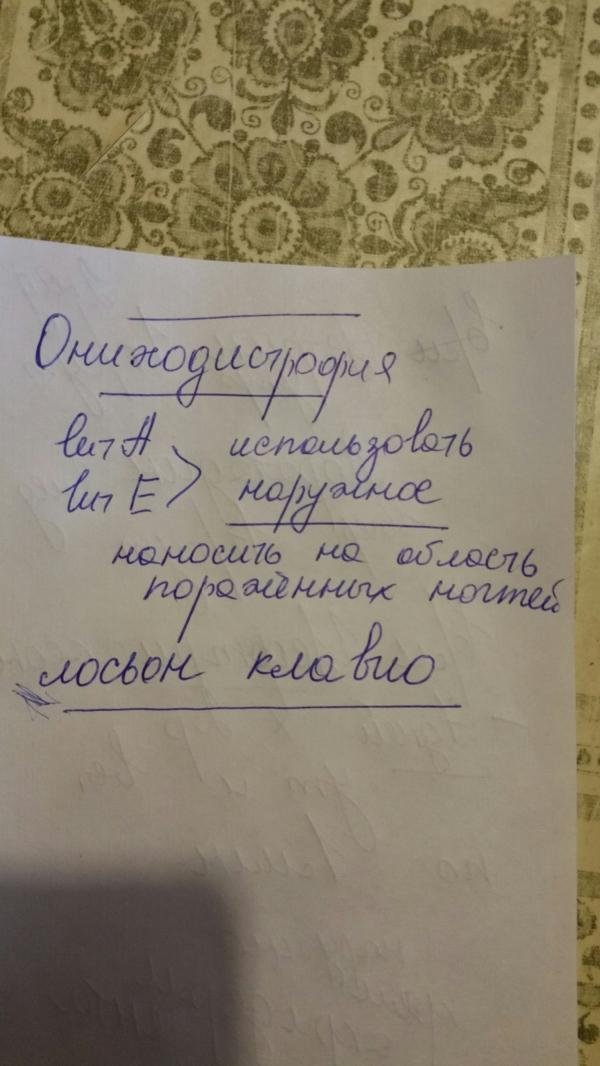 Ониходистрофия
вит А использовать
вит Е > наружное
наносить на область
поражённых ногтей
лосьон клавио